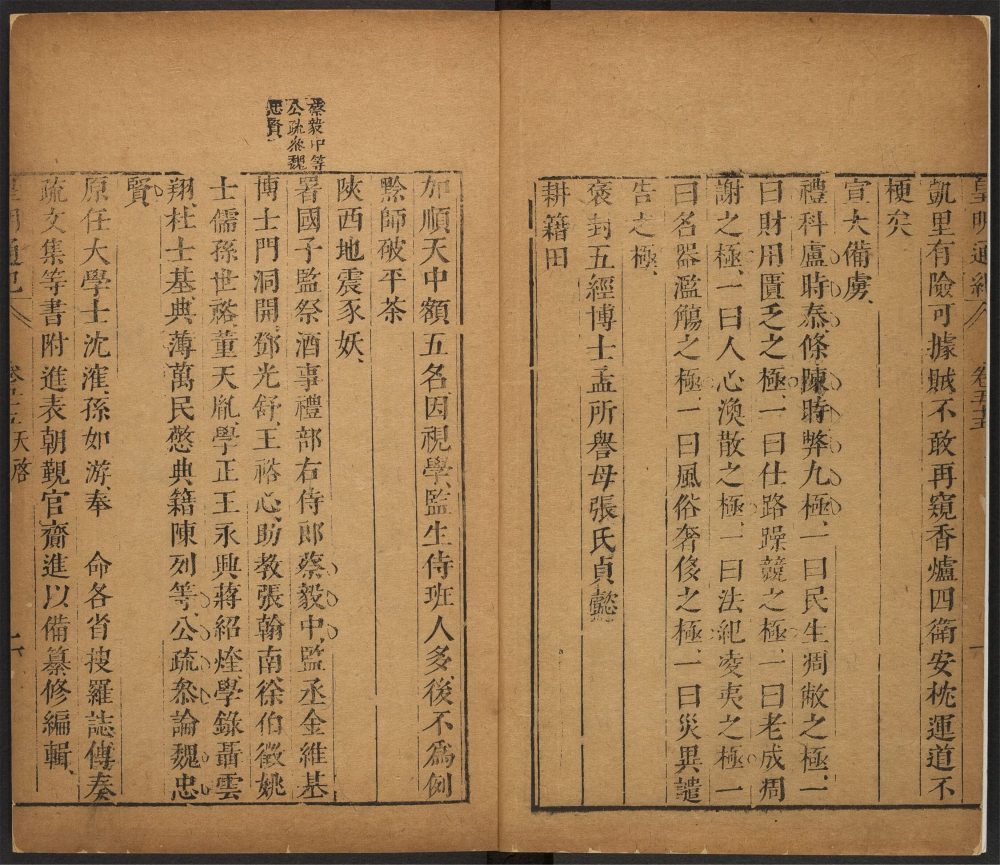 皇明通紀 卷五十五
凱里有險可據賊不敢再窺香爐四衛安枕運道不
梗矣
宣大備虜
禮科盧時泰條陳時弊九極一曰民生凋敝之極一
曰財用匱乏之極一曰仕路躁競之極一曰老成凋
謝之極一曰人心渙散之極一曰法紀凌夷之極一
曰名器濫觴之極一曰風俗奢侈之極一曰災異譴
告之極
褒封五經博士孟所譽母張氏貞懿
耕籍田
加順天中額五名因視學監生侍班人多後不爲例
黔師破平茶
陝西地震豕妖
蔡毅中等
公疏叅魏
忠賢
署國子監祭酒事禮部右侍郎蔡毅中監丞金維基
博士門洞開鄧光舒王裕心助教張翰南徐伯徵姚
士儒孫世裕董天胤學正王永興蔣紹煃學錄聶雲
翔杜士基典薄萬民憼典籍陳烈等公疏叅論魏忠
賢
原任大學士沈㴶孫如游奉 命各省搜羅誌傳奏
疏文集等書附進表朝覲官齎進以備纂修編輯
皇明通紀 天啓